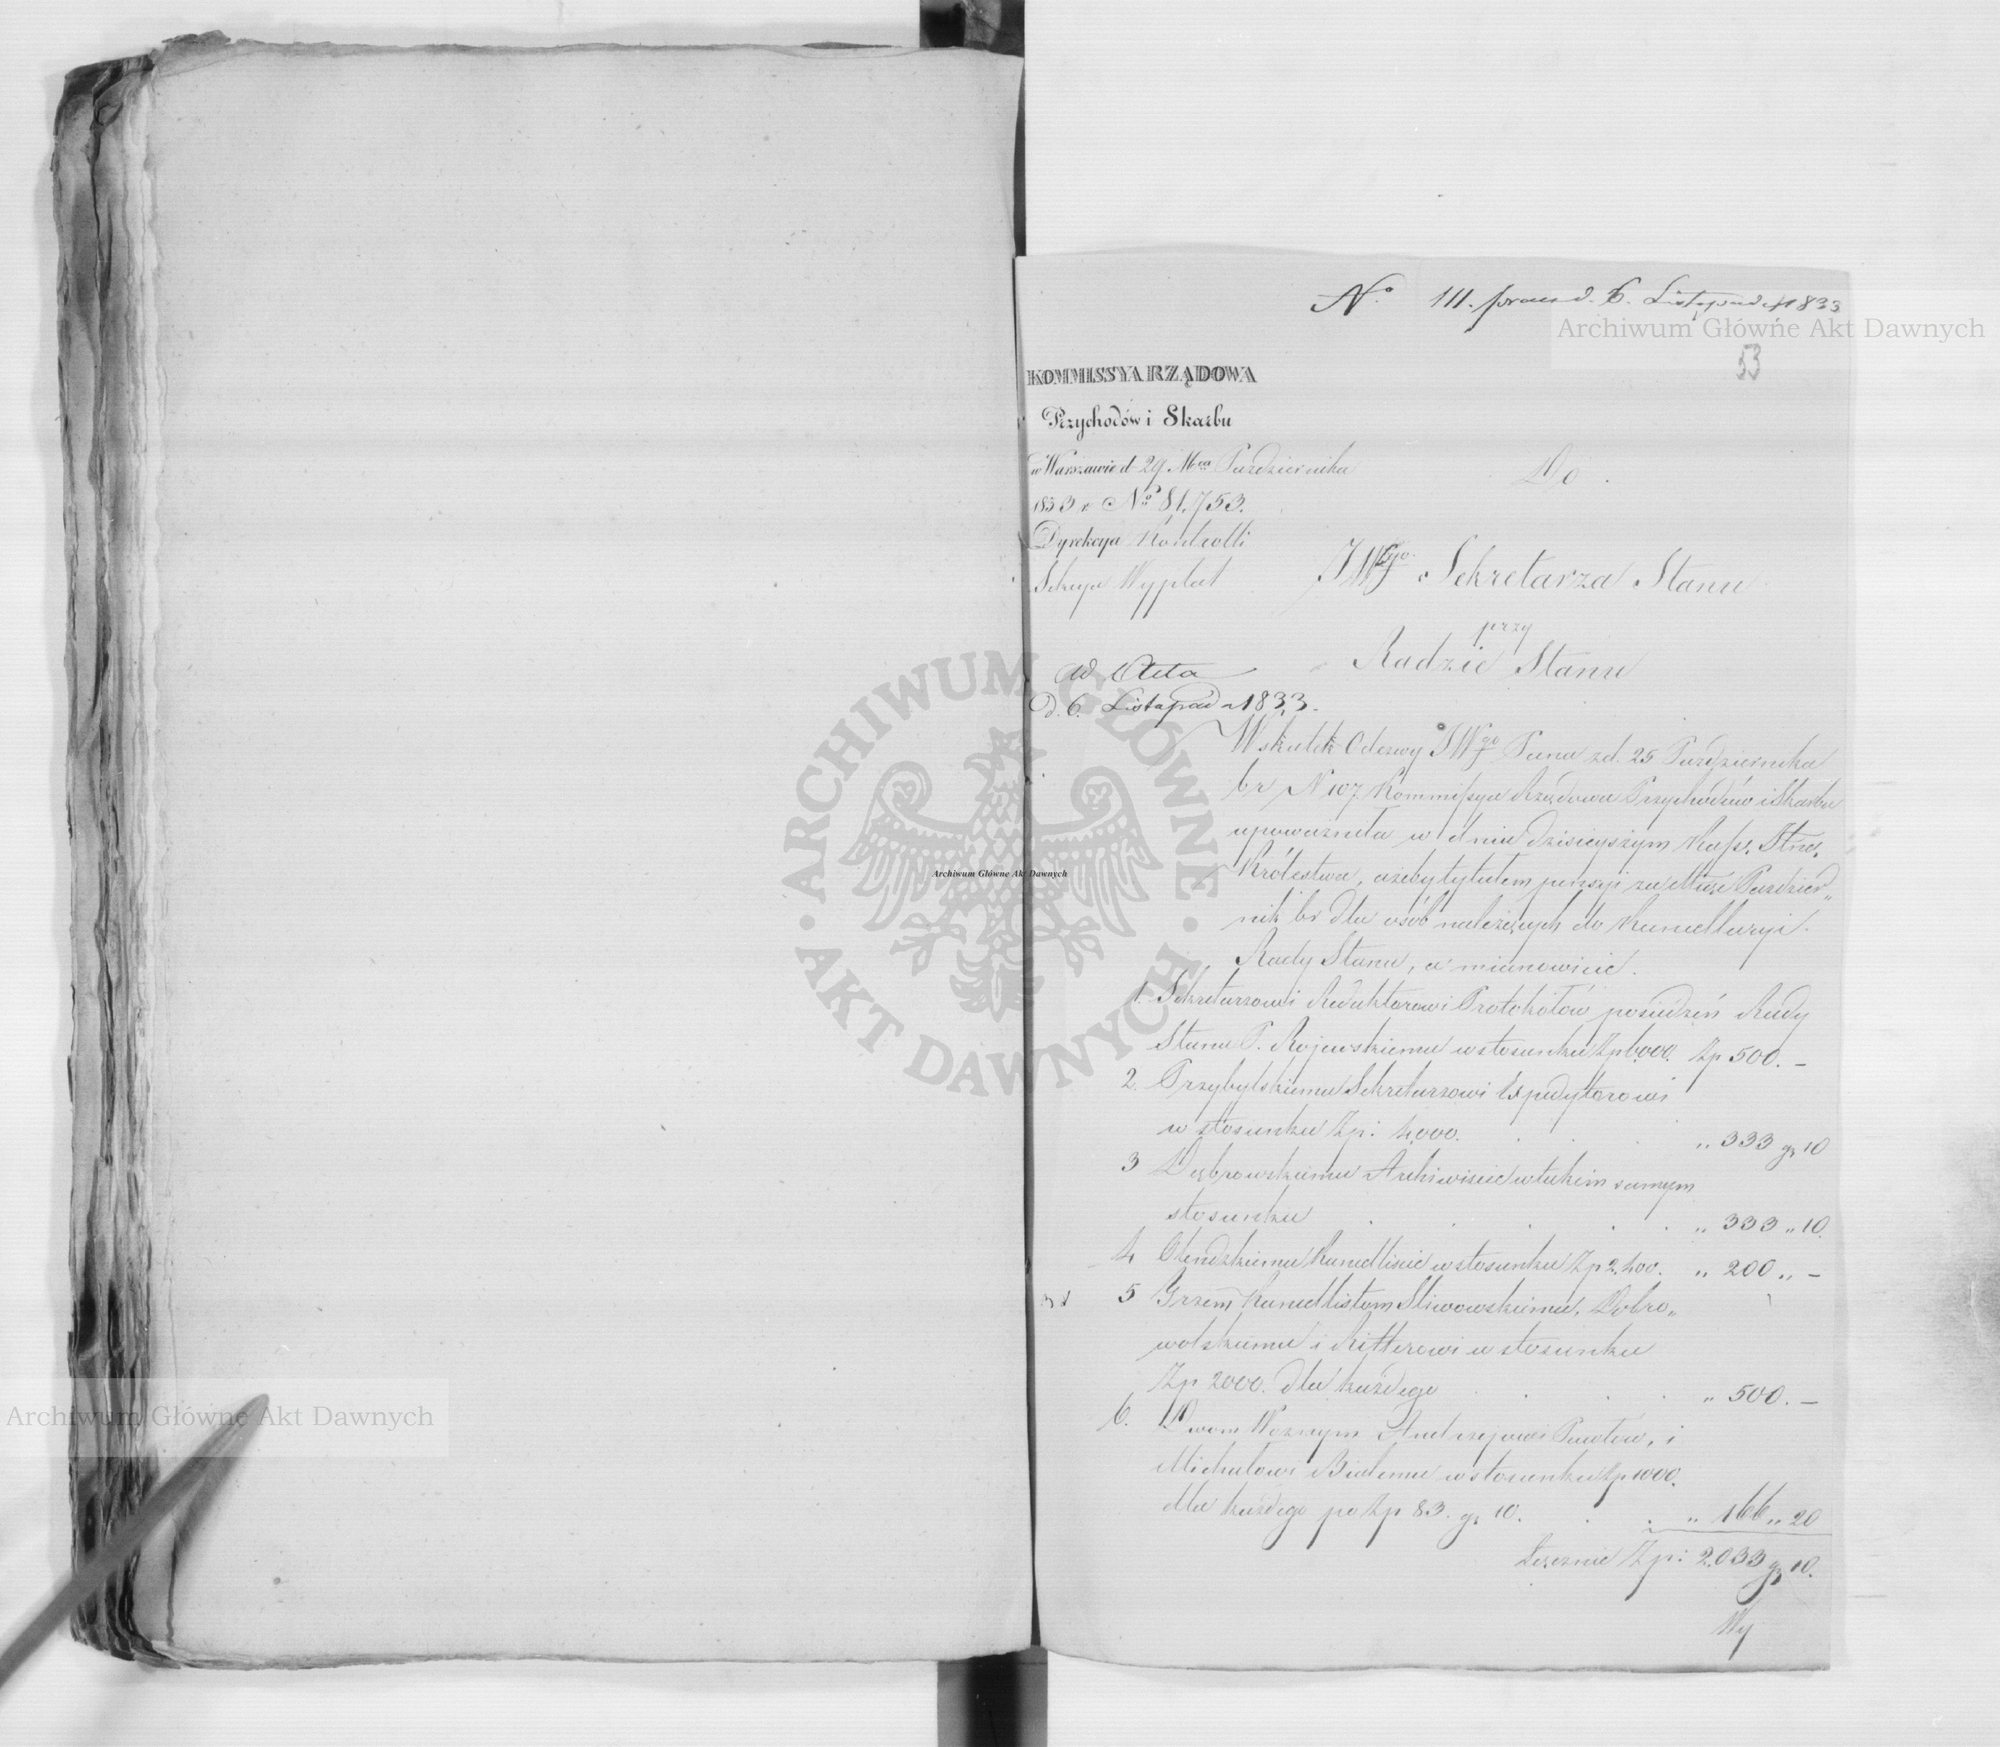 No. 111. praes. d. 6. Listopada 1833
53
KOMMISSYA RZĄDOWA
Przychodów i Skarbu
w Warszawie d 29 Mca Pazdziernika
1833 r. No 81,753.
Dyrekcya Kontrolli
Sekcya Wypłat
Do
JWgo Sekretarza Stanu
przy
Radzie Stanu
ad Acta
d. 6. Listopada 1833.
Wskutek Odezwy JWgo Pana z d. 25 Pazdziernika
br N 107 Kommissya Rządowa Przychodów i Skarbu
upoważniła w dniu dzisieyszym Kass.
Królestwa, ażeby tytułem pensyi za Mc Pazdzier„
nik br dla osób należących do Kancellaryi
Rady Stanu, a mianowicie.
1. Sekretarzowi Redaktorowi Protokołów posiedzeń Rady
Stanu P. Rojewskiemu w stosunku Zp 6,000. Zp 500. –
2. Przybylskiemu Sekretarzowi Expedytorowi
w stosunku Zp: 4,000. „ 333 gr 10
3 Dąbrowskiemu Archiwiście w takim samym
stosunku „ 333 „ 10.
4 Olendzkiemu Kancelliście w stosunku Zp 2,400. „ 200 „ –
5 Trzem Kancellistom Śliwowskiemu, Dobro„
wolskiemu i Ritterowi w stosunku
Zp 2000. dla każdego „ 500. –
6. Dwom Woznym Andrzejowi Pawłow, i
Michałowi Białemu w stosunku Zp 1000.
dla każdego po Zp 83. gr 10. „ 166 „ 20
Łącznie Zp: 2,033 gr 10.
Wy
Archiwum Główne Akt Dawnych
Archiwum Główne Akt Dawnych
Archiwum Główne Akt Dawnych
ARCHIWUM GŁÓWNE
AKT DAWNYCH